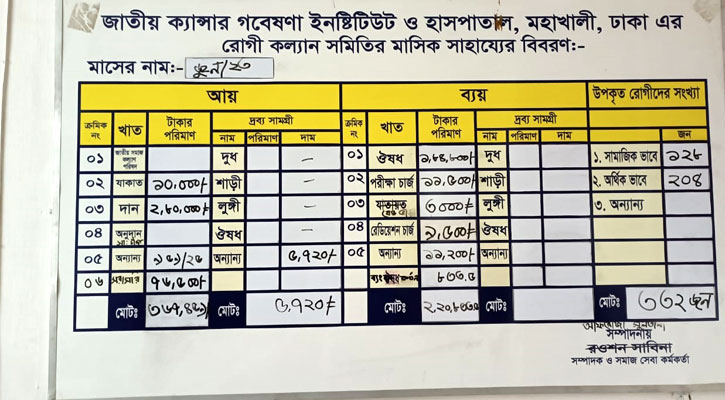 জাতীয় ক্যান্সার গবেষণা ইনষ্টিটিউট ও হাসপাতাল, মহাখালী, ঢাকা এর
রোগী কল্যান সমিতির মাসিক সাহায্যের বিবরণ:-
মাসের নাম:- জুন/২৩
আয় ব্যয় উপকৃত রোগীদের সংখ্যা
ক্রমিক নং খাত টাকার পরিমাণ দ্রব্য সামগ্রী ক্রমিক নং খাত টাকার পরিমাণ দ্রব্য সামগ্রী
নাম পরিমাণ দাম নাম পরিমাণ দাম জন
০১ জাতীয় সমাজ কল্যাণ পরিষদ দুধ — ০১ ঔষধ দুধ ১. সামাজিক ভাবে ১২৮
০২ যাকাত ১০,০০০/- শাড়ী — ০২ পরীক্ষা চার্জ ১১,৫০০/- শাড়ী ২. অর্থিক ভাবে ২০৪
০৩ দান ২,৮০,০০০/- লুঙ্গী — ০৩ যাতায়ত ৩০০০/- লুঙ্গী ৩. অন্যান্য
০৪ অনুদান ঔষধ ০৪ রেডিয়েশন চার্জ ১,৫০০/- ঔষধ
০৫ অন্যান্য অন্যান্য ৫,৭২০/- ০৫ অন্যান্য ১১,২০০/- অন্যান্য
০৬ ৭৬,৫০০/-
মোটঃ মোটঃ ৫,৭২০/- মোটঃ মোটঃ মোটঃ ৩৩২ জন
সম্পাদনীয়
রওশন সাবিনা
সম্পাদক ও সমাজ সেবা কর্মকর্তা